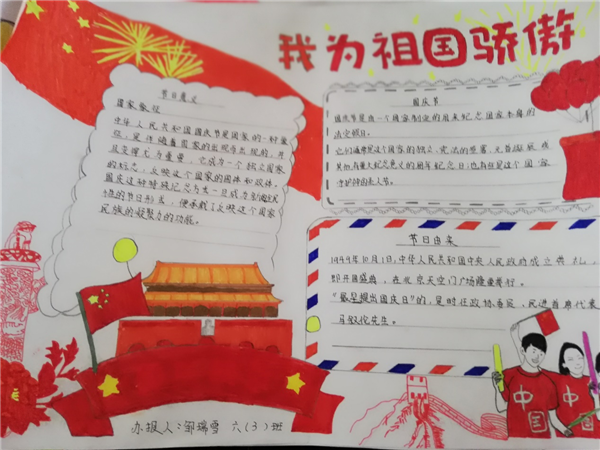 我为祖国骄傲
节日意义
国家象征
中华人民共和国国庆节是国家的一种象
征,是伴随着国家的出现而出现的,并
且变得尤为重要,它成为一个独立国家
的标志,反映这个国家的国体和政体。
国庆这种特殊纪念方式一旦成为
性的节日形式,便承载了反映这个国家
民族的凝聚力的功能。
国庆节
国庆节是由一个国家制定的用来纪念国家本身的
法定假日。
它们通常是这个国家的独立、宪法的签署、元首诞辰或
其他有重大纪念意义的周年纪念日;也有些是这个国家
守护神的圣人节。
节日由来
1949年10月1日,中华人民共和国中央人民政府成立典礼,
即开国盛典,在北京天安门广场隆重举行。
“最早提出国庆日”的,是时任政协委员、民进首席代表
马叙伦先生。
中国
中国
办报人:邹瑞雪 六(3)班